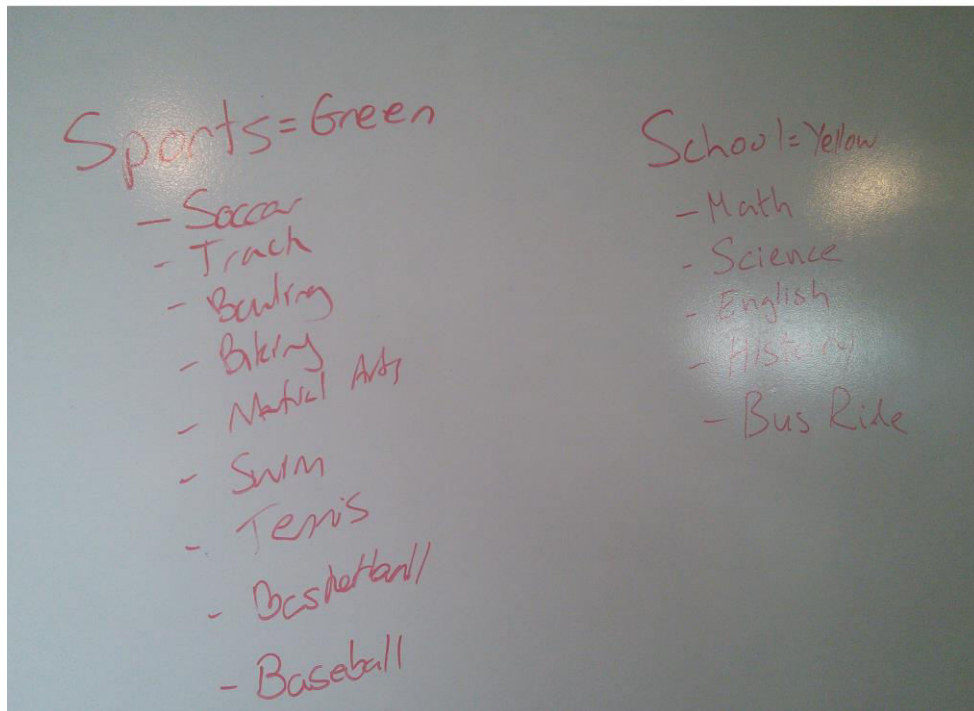 Sports=Green
- Soccar
- Track
- Bowling
- Biking
- Martial Arts
- Swim
- Tennis
- Basketball
- Baseball
School=Yellow
- Math
- Science
- English
- History
- Bus Ride